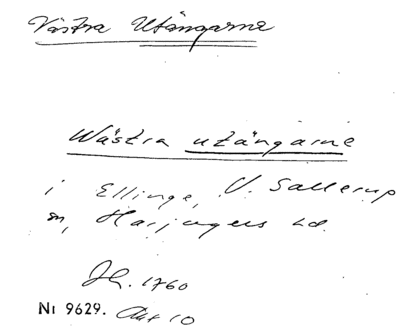 Västra Utängarne
Wästra utängarne
i Ellinge, V. Sallerup
sn, Harjagers hd.
1760
Nr 9629. Akt 10